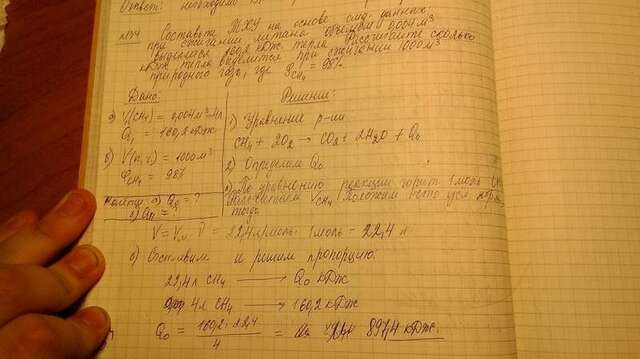 Ответ: необходимо
№34 Составьте ТХУ на основе след. данных:
при сжигании метана объёмом 0,004 м³
выделилось 160,2 кДж тепла. Рассчитайте сколько
кДж тепла выделится при сжигании 1000 м³
природного газа, где φCH₄ = 98%
Дано:
а) V(CH₄) = 0,004 м³ = 4л
Q₁ = 160,2 кДж
б) V(п.г.) = 1000 м³
φCH₄ = 98%
Найти: а) Q₀ = ?
Решение:
1) Уравнение р-ии
CH₄ + 2O₂ → CO₂ + 2H₂O + Q₀
2) Определим Q₀
а) По уравнению реакции горит 1 моль CH₄
VCH₄
V = Vм · ν = 22,4 л/моль · 1 моль = 22,4 л
б) Составим и решим пропорцию:
22,4 л CH₄ → Q₀ кДж
4л CH₄ → 160,2 кДж
Q₀ = 160,2 · 22,4 / 4 = 897,4 кДж.